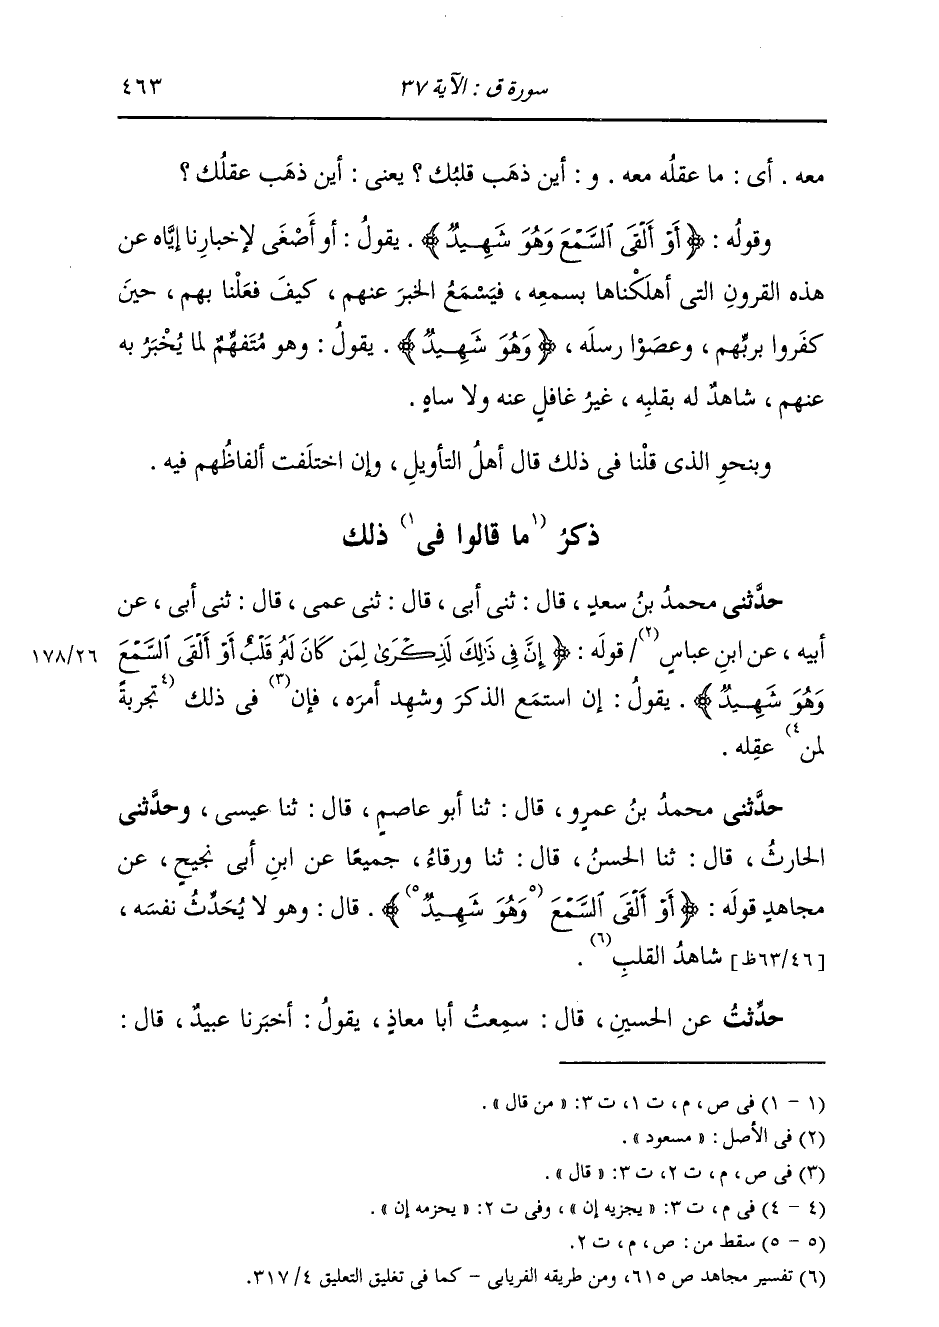 سورة ق : الآية ٣٧ ٤٦٣
معه . أى : ما عقلُه معه . و : أين ذهَب قلبُك ؟ يعنى : أين ذهَب عقلُك ؟
وقولُه : ﴿ أَوْ أَلْقَى ٱلسَّمْعَ وَهُوَ شَهِيدٌ ﴾ . يقولُ : أو أَصْغَى لإخبارِنا إيَّاه عن
هذه القرونِ التى أهلَكْناها بسمعِه ، فيَسْمَعُ الخبرَ عنهم ، كيفَ فعَلْنا بهم ، حينَ
كفَروا بربِّهم ، وعصَوْا رسلَه ، ﴿ وَهُوَ شَهِيدٌ ﴾ . يقولُ : وهو مُتَفهِّمٌ لما يُخْبَرُ به
عنهم ، شاهدٌ له بقلبِه ، غيرُ غافلٍ عنه ولا ساهٍ .
وبنحوِ الذى قلْنا فى ذلك قال أهلُ التأويلِ ، وإن اختلَفت ألفاظُهم فيه .
ذكرُ (١ ما قالوا فى ١) ذلك
حدَّثنى محمدُ بنُ سعدٍ ، قال : ثنى أبى ، قال : ثنى عمى ، قال : ثنى أبى ، عن
أبيه ، عن ابنِ عباسٍ (٢) / قولَه : ﴿ إِنَّ فِى ذَٰلِكَ لَذِكْرَىٰ لِمَن كَانَ لَهُۥ قَلْبٌ أَوْ أَلْقَى ٱلسَّمْعَ ١٧٨/٢٦
وَهُوَ شَهِيدٌ ﴾ . يقولُ : إن استمَع الذكرَ وشهِد أمرَه ، فإن (٣) فى ذلك (٤ تجربةً
لمن ٤) عقِله .
حدَّثنى محمدُ بنُ عمرٍو ، قال : ثنا أبو عاصمٍ ، قال : ثنا عيسى ، وحدَّثنى
الحارثُ ، قال : ثنا الحسنُ ، قال : ثنا ورقاءُ ، جميعًا عن ابنِ أبى نجيحٍ ، عن
مجاهدٍ قولَه : ﴿ أَوْ أَلْقَى ٱلسَّمْعَ (٥ وَهُوَ شَهِيدٌ ٥) ﴾ . قال : وهو لا يُحَدِّثُ نفسَه ،
[٦٣/٤٦ظ] شاهدُ القلبِ (٦) .
حدِّثتُ عن الحسينِ ، قال : سمِعتُ أبا معاذٍ ، يقولُ : أخبَرنا عبيدٌ ، قال :
(١ - ١) فى ص ، م ، ت ١ ، ت ٣ : « من قال » .
(٢) فى الأصل : « مسعود » .
(٣) فى ص ، م ، ت ٢ ، ت ٣ : « قال » .
(٤ - ٤) فى م ، ت ٣ : « يجزيه إن » ، وفى ت ٢ : « يحزمه إن » .
(٥ - ٥) سقط من : ص ، م ، ت ٢ .
(٦) تفسير مجاهد ص ٦١٥ ، ومن طريقه الفريابى - كما فى تغليق التعليق ٣١٧/٤ .